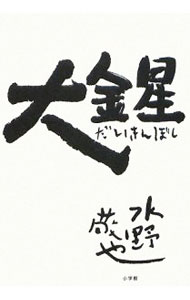 大金星
だいきんぼし
水野
敬也
小学館